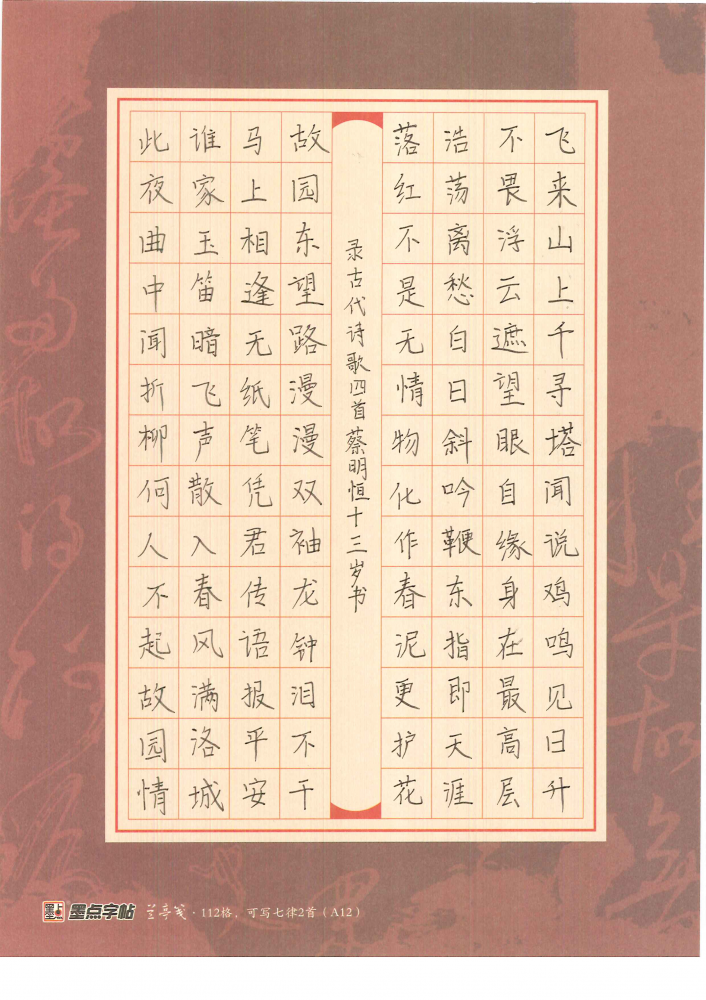 飞来山上千寻塔闻说鸡鸣见日升
不畏浮云遮望眼自缘身在最高层
浩荡离愁白日斜吟鞭东指即天涯
落红不是无情物化作春泥更护花
录古代诗歌四首蔡明恒十三岁书
故园东望路漫漫双袖龙钟泪不干
马上相逢无纸笔凭君传语报平安
谁家玉笛暗飞声散入春风满洛城
此夜曲中闻折柳何人不起故园情
墨点字帖 兰亭笺·112格，可写七律2首（A12）